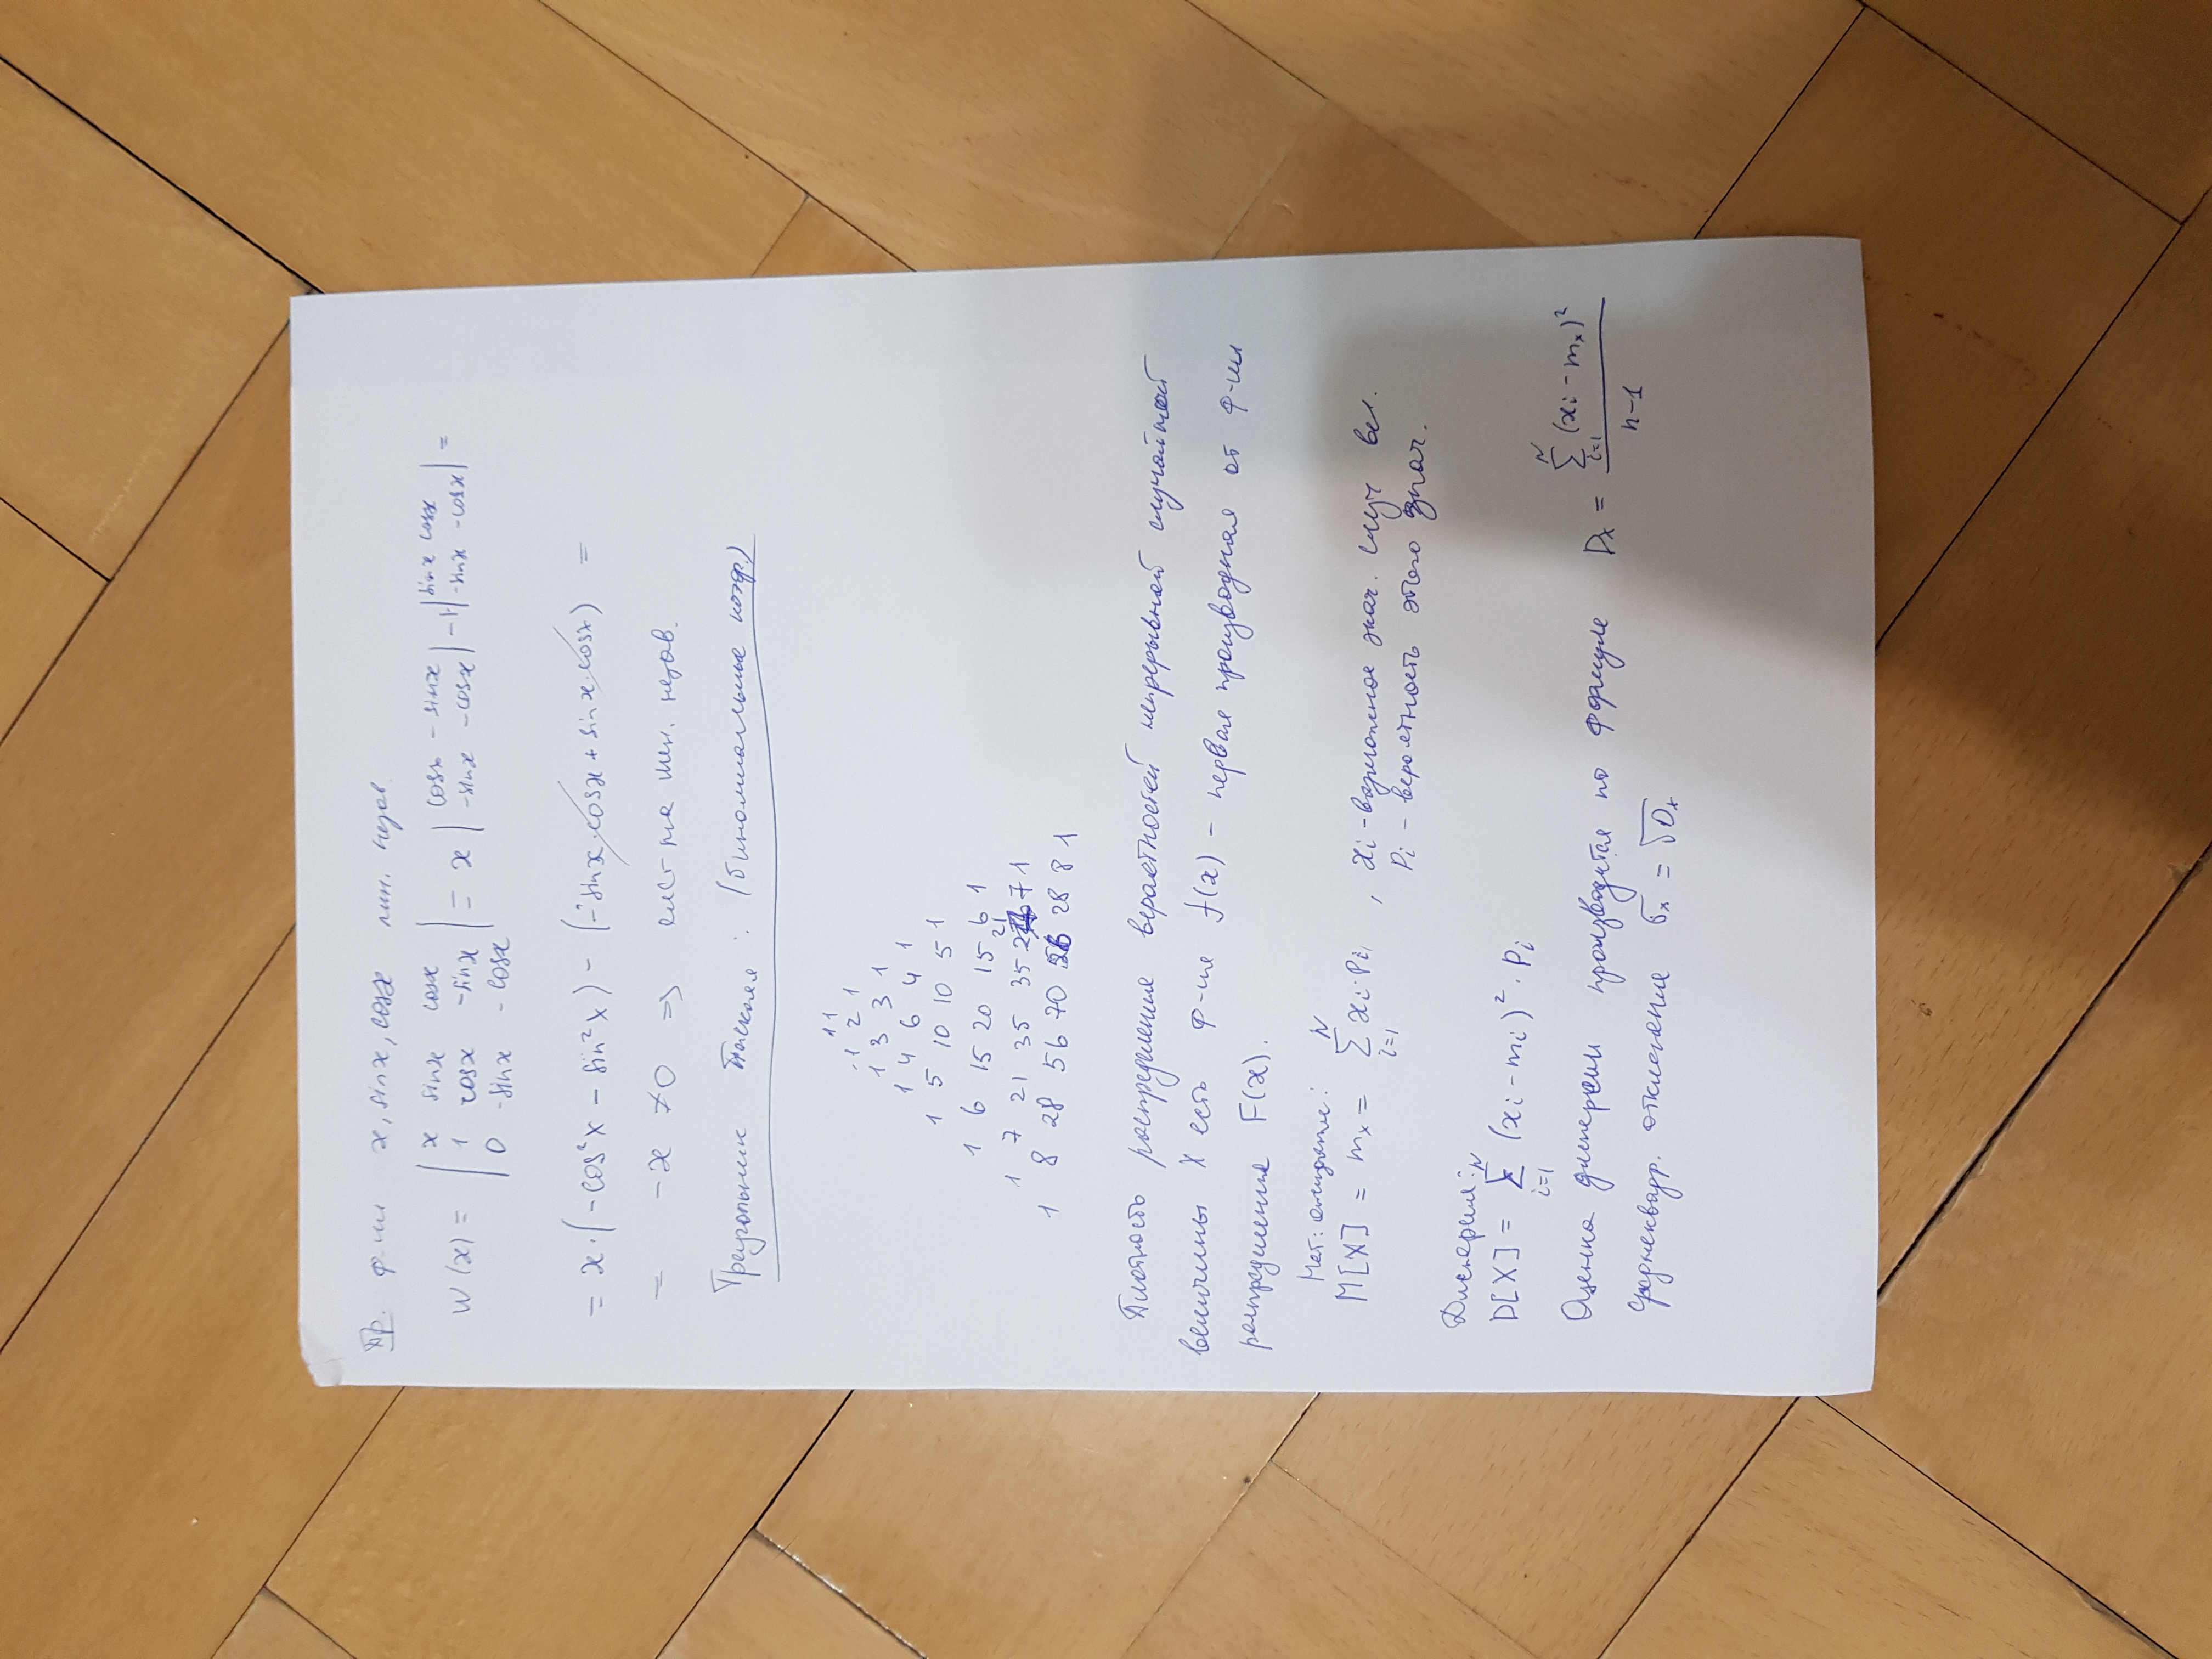 Пр. ф-ии x, sinx, cosx лин. незав.
W(x) = | x sinx cosx | = x | cosx -sinx | -1·| sinx cosx | =
| 1 cosx -sinx | | -sinx -cosx | | -sinx -cosx |
| 0 -sinx -cosx |
= x·(-cos²x - sin²x) - (-sinx·cosx + sinx·cosx) =
= -x ≠ 0 => лин. незав.
Треугольник Паскаля: (биномиальные коэф.)
1 1
1 2 1
1 3 3 1
1 4 6 4 1
1 5 10 10 5 1
1 6 15 20 15 6 1
21
1 7 21 35 35 7 1
1 8 28 56 70 56 28 8 1
Плотность распределения вероятностей непрерывной случайной
величины X есть ф-ия f(x) - первая производная от ф-ии
распределения F(x).
Мат. ожидание:
M[X] = mx = N∑i=1 xi·Pi, xi - возможное знач. случ вел.
Pi - вероятность этого знач.
Дисперсия:
D[X] = N∑i=1 (xi - mi)²·Pi
Оценка дисперсии производится по формуле Dx = N∑i=1 (xi - mx)² / n-1
среднеквадр. отклонение σx = √Dx